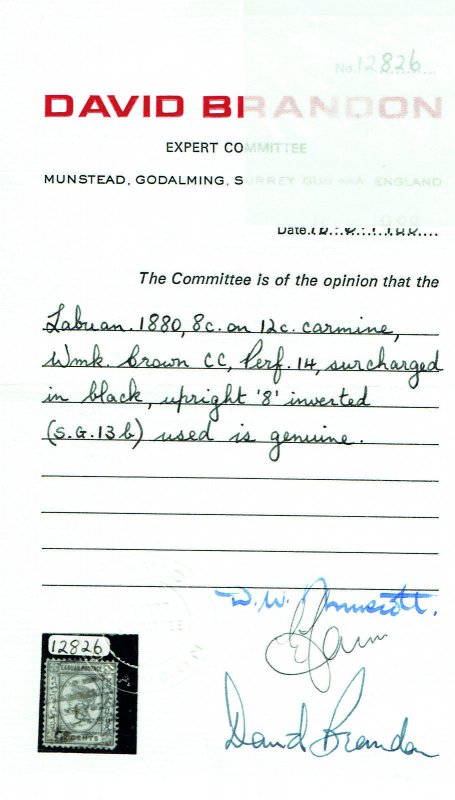 No. 12826
DAVID BRANDON
EXPERT COMMITTEE
MUNSTEAD, GODALMING, SURREY ENGLAND
Date
The Committee is of the opinion that the
Labuan. 1880, 8c. on 12c. carmine,
Wmk. Crown CC, Perf. 14, surcharged
in black, upright '8' inverted
(S.G.13b) used is genuine.
D.W.
David Brandon
12826
LABUAN POSTAGE
CENTS